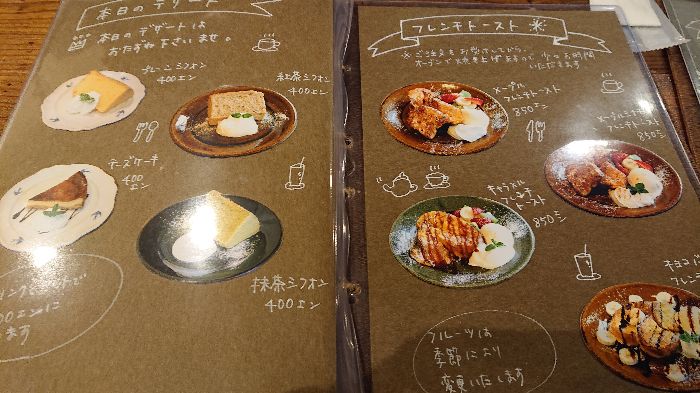 本日のデザート
本日のデザートは
おたずね下さいませ。
プレーンシフォン
400エン
紅茶シフォン
400エン
チーズケーキ
400
エン
抹茶シフォン
400エン
00エンに
ます
フレンチトースト
※ご注文をお受けしてから、
オーブンで焼き上げますので少々お時間
いただきます
メープル
フレンチトースト
850エン
850エン
キャラメル
フレンチ
トースト
850エン
フルーツは
季節により
変更いたします